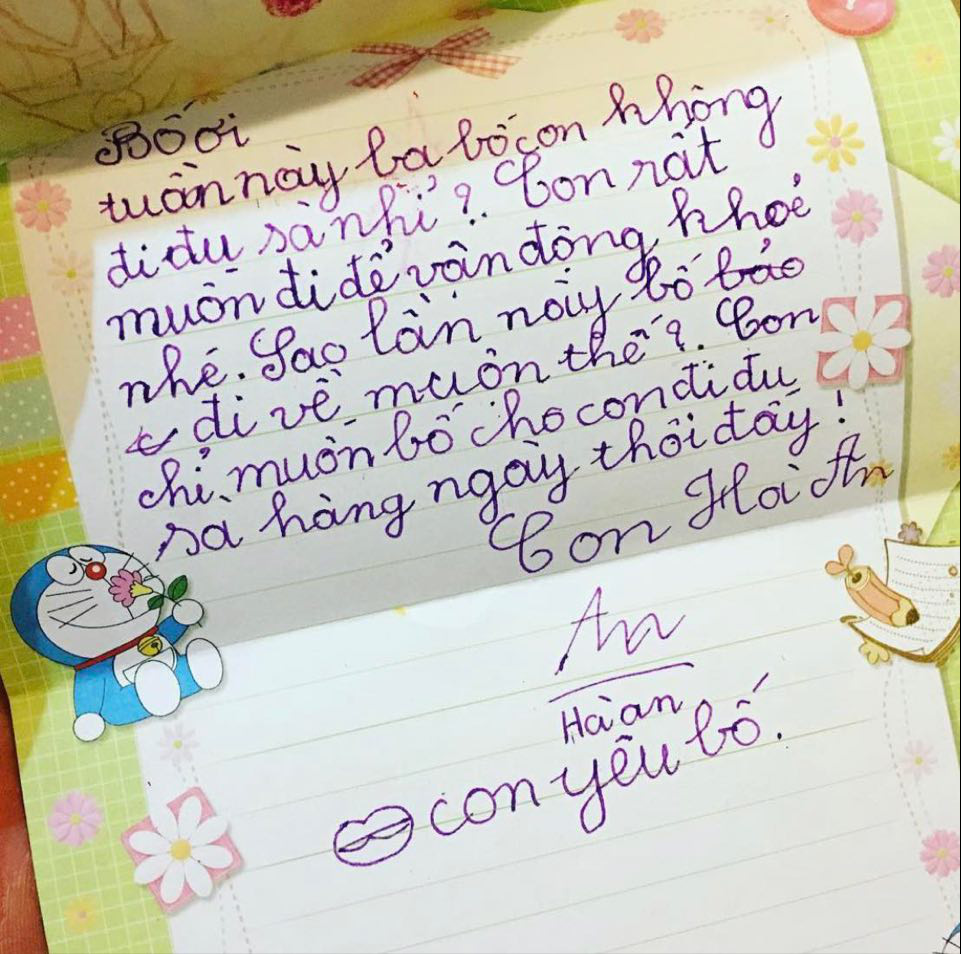 Bố ơi
tuần này ba bố con không
đi đu xà nhỉ?. Con rất
muốn đi để vận động khoẻ
nhé. Sao lần này bố bảo
đi về muộn thế?. Con
chỉ muốn bố cho con đi đu
sà hàng ngày thôi đấy!
Con Hà An
An
Hà an
con yêu bố.